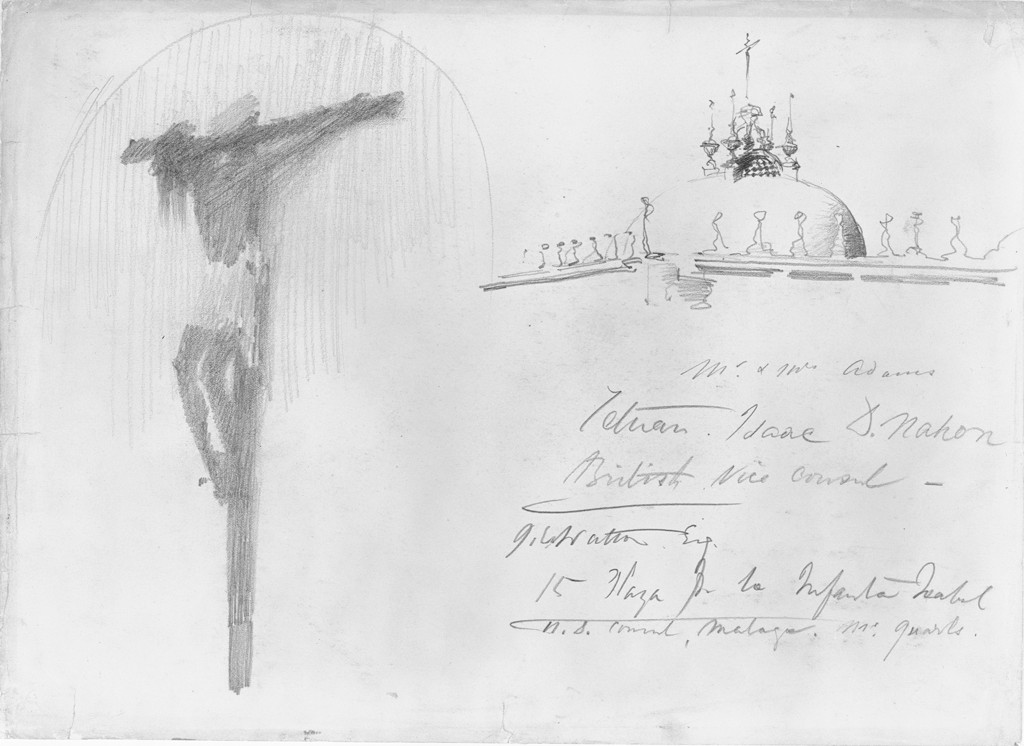 Mr. & Mrs Adams
Tetuan. Isaac D. Nahon
British Vice Consul –
Esq.
15 Plaza de la Infanta Isabel
U.S. Consul, Malaga. Mr. Quarls.